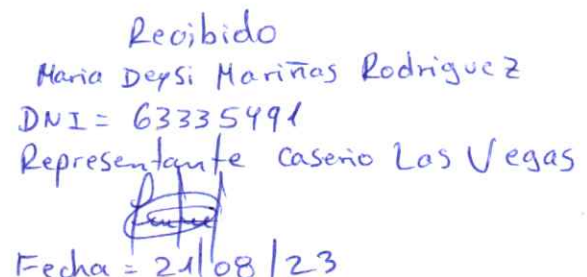 Recibido
Maria Deysi Mariñas Rodriguez
DNI = 63335491
Representante caserio Las Vegas
Fecha = 21/08/23